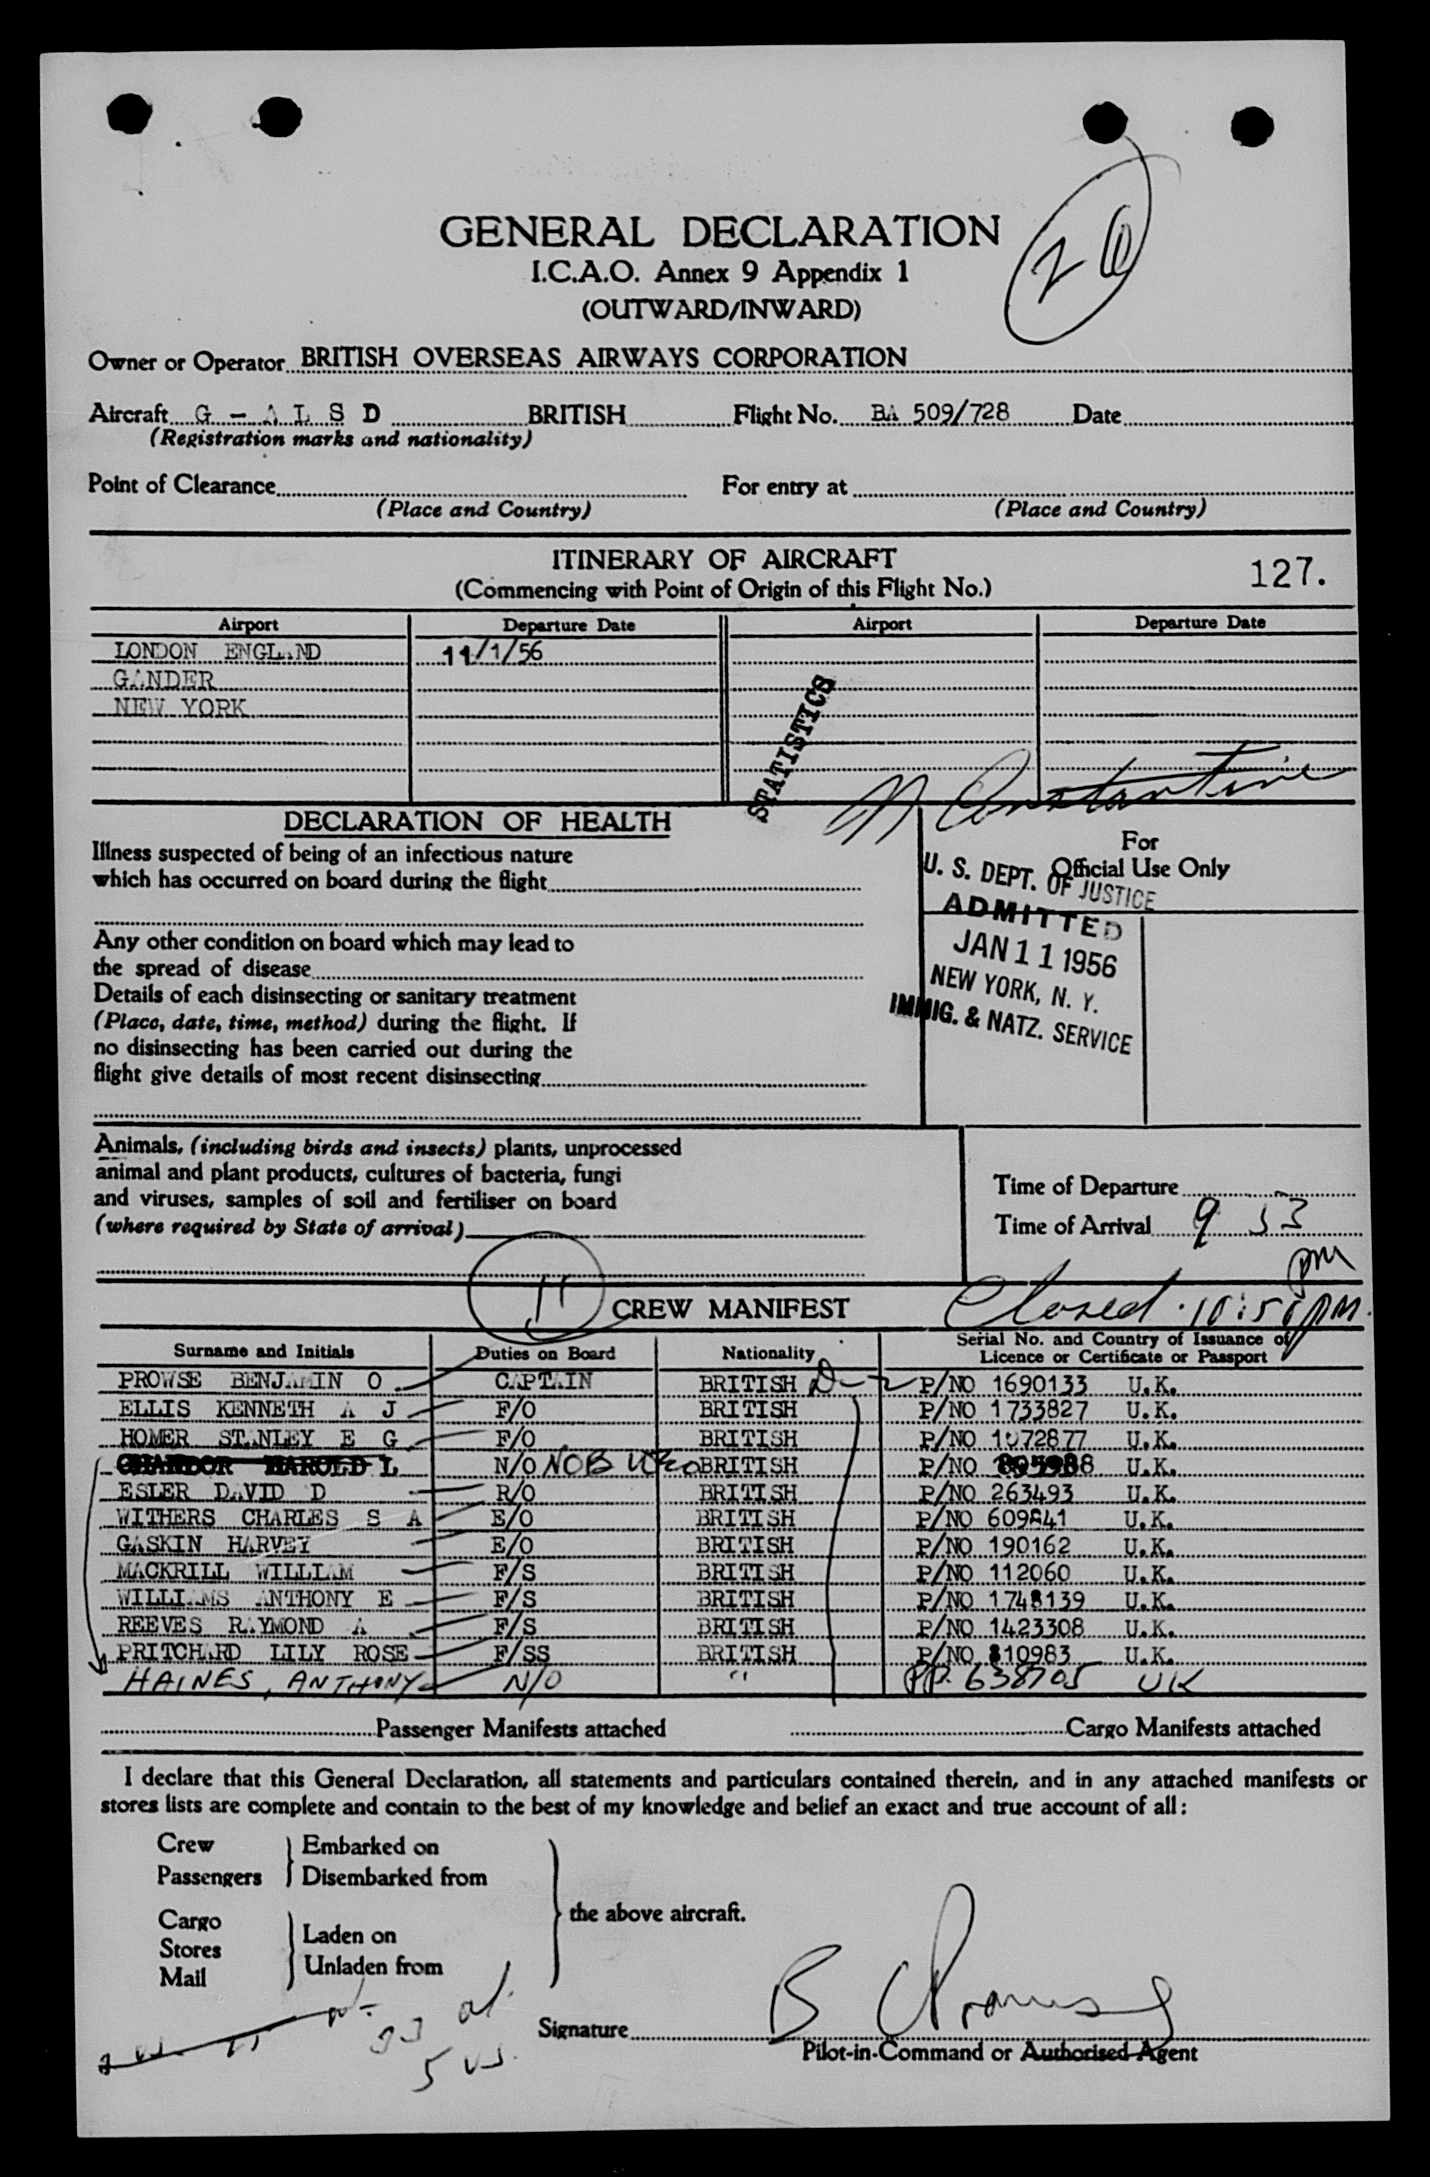 20
GENERAL DECLARATION
I.C.A.O. Annex 9 Appendix 1
(OUTWARD/INWARD)
Owner or Operator BRITISH OVERSEAS AIRWAYS CORPORATION
Aircraft G - A L S D BRITISH Flight No. BA 509/728 Date
(Registration marks and nationality)
Point of Clearance For entry at
(Place and Country) (Place and Country)
ITINERARY OF AIRCRAFT
(Commencing with Point of Origin of this Flight No.) 127.
Airport Departure Date Airport Departure Date
LONDON ENGLAND 11/1/56
GANDER
NEW YORK
STATISTICS
N Constantine
DECLARATION OF HEALTH
For
Official Use Only
Illness suspected of being of an infectious nature
which has occurred on board during the flight
U. S. DEPT. OF JUSTICE
ADMITTED
JAN 11 1956
NEW YORK, N. Y.
IMMIG. & NATZ. SERVICE
Any other condition on board which may lead to
the spread of disease
Details of each disinsecting or sanitary treatment
(Place, date, time, method) during the flight. If
no disinsecting has been carried out during the
flight give details of most recent disinsecting
Animals, (including birds and insects) plants, unprocessed
animal and plant products, cultures of bacteria, fungi
and viruses, samples of soil and fertiliser on board
(where required by State of arrival)
Time of Departure
Time of Arrival 9 53
pm
11 CREW MANIFEST Closed 10:56 PM.
Surname and Initials Duties on Board Nationality Serial No. and Country of Issuance of
Licence or Certificate or Passport
PROWSE BENJAMIN O CAPTAIN BRITISH P/NO 1690133 U.K.
ELLIS KENNETH A J F/O BRITISH P/NO 1733827 U.K.
HOMER STANLEY E G F/O BRITISH P/NO 1072877 U.K.
CHANDOR HAROLD L N/O NOB BRITISH P/NO U.K.
ESLER DAVID D R/O BRITISH P/NO 263493 U.K.
WITHERS CHARLES S A E/O BRITISH P/NO U.K.
GASKIN HARVEY E/O BRITISH P/NO 190162 U.K.
MACKRILL WILLIAM F/S BRITISH P/NO 112060 U.K.
WILLIAMS ANTHONY E F/S BRITISH P/NO 1748139 U.K.
REEVES RAYMOND A F/S BRITISH P/NO 1423308 U.K.
PRITCHARD LILY ROSE F/SS BRITISH P/NO 810983 U.K.
HAINES, ANTHONY N/O " PP. 638705 UK
Passenger Manifests attached Cargo Manifests attached
I declare that this General Declaration, all statements and particulars contained therein, and in any attached manifests or
stores lists are complete and contain to the best of my knowledge and belief an exact and true account of all:
Crew
Passengers
Embarked on
Disembarked from
Cargo
Stores
Mail
Laden on
Unladen from
the above aircraft.
33 al.
5 US.
Signature B Prowse
Pilot-in-Command or Authorised Agent